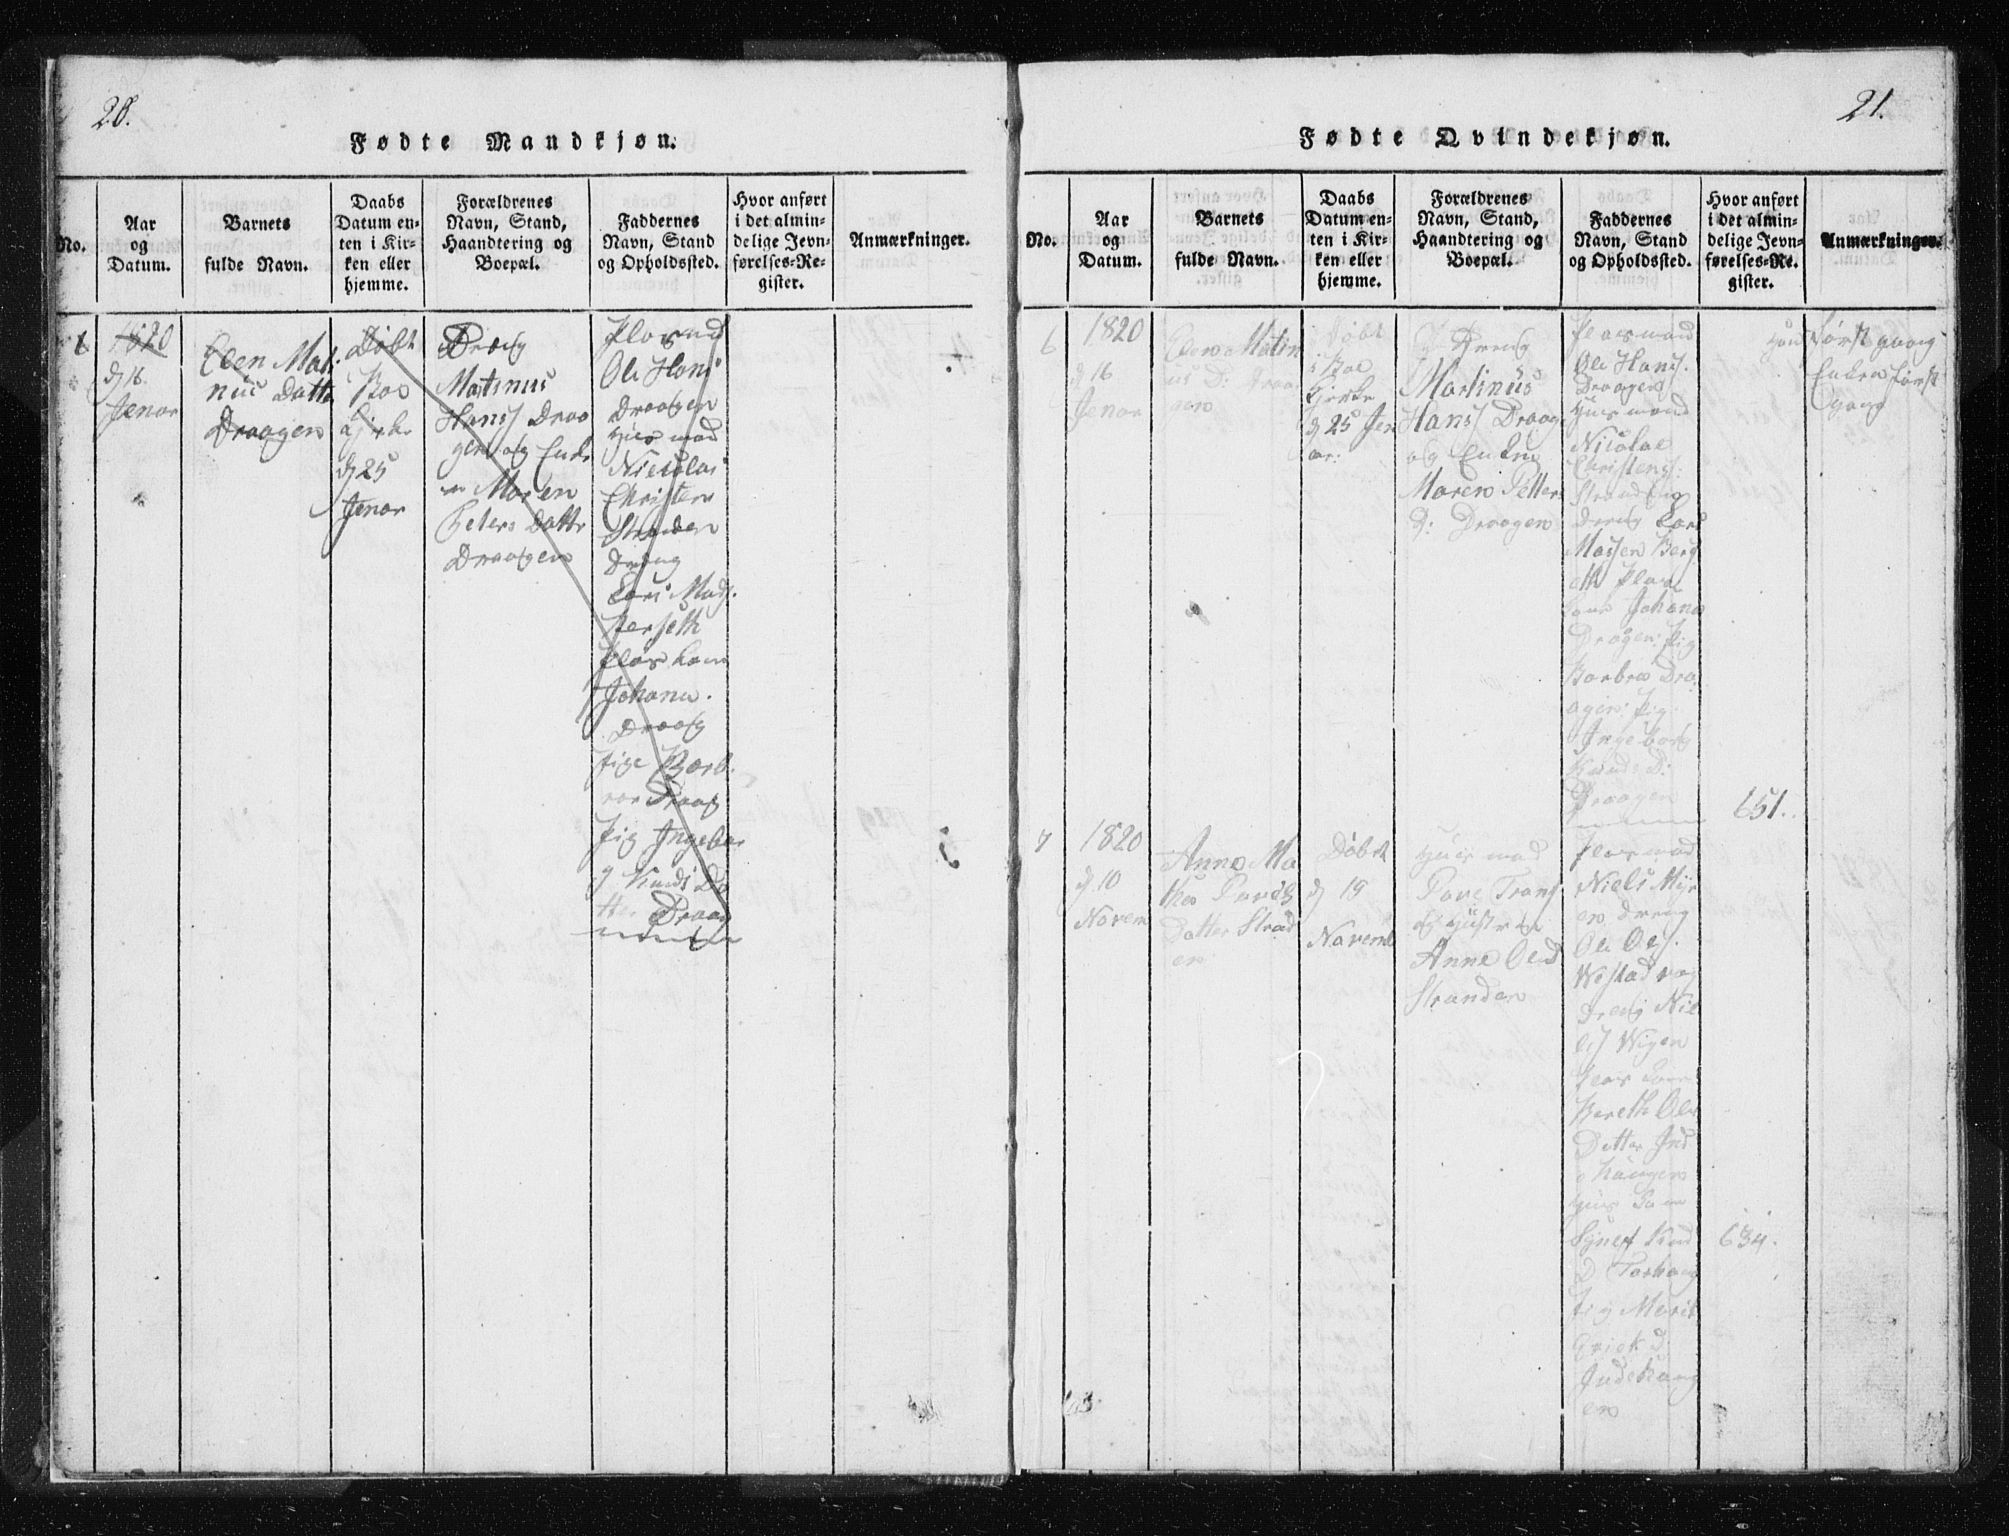 20.
Fødte Mandkjøn.
No.
Aar
og
Datum.
Barnets
fulde Navn.
Daabs
Datum en-
ten i Kir-
ken eller
hjemme.
Forældrenes
Navn, Stand,
Haandtering og
Boepæl.
Faddernes
Navn, Stand
og Opholdssted.
Hvor anført
i det almin-
delige Jevn-
førelses-Re-
gister.
Anmærkninger.
1820
d 16
Jenor
Elen Mati
nus Datte
Draagen
Døbt
Boe
Kirke
d 25
Jenor
Dreng
Matinus
Hans Draa
gen og Enke
Maren
Peters Datte
Draagen
Plasmad
Ole Hans
Draagen
Huus mad
Nicolai
Christen
Stranden
Dreng
Lars Mads.
Berseth
Plas kone
Johana.
Draag
Pige Barb
roe Draag
Pig Ingebor
g Knuds Da
tter Draag
21.
Fødte Qvindekjøn.
No.
Aar
og
Datum.
Barnets
fulde Navn.
Daabs
Datum en-
ten i Kir-
ken eller
hjemme.
Forældrenes
Navn, Stand,
Haandtering og
Boepæl.
Faddernes
Navn, Stand
og Opholdssted.
Hvor anført
i det almin-
delige Jevn-
førelses-Re-
gister.
Anmærkninger.
6
1820
d 16
Jenor
Elen Matin
us D: Draa
gen
Døbt
i Boe
Kjerke
d 25 Jen
or.
Dreng
Martinus
Hans Draag
og Enken
Maren Petters
D: Draagen
Plasmand
Ole Hans.
Draagen
Huusmand
Nicolae
Christens.
Strand og
Dreng Lars
Massen Berg
eth Plas
kone Johana
Draagen: Pig
Barbroe Dra
agen: Pig
Ingeborg
Knuds D:
Draagen
651.
Første gaang
Enken først
gang
7
1820
d 10
Novem
Anne Ma
thea Povels
Datter Strad
en
Døbt
d 19
Novemb
Huus mad
Pove Trons
og Hustru
Anne Oles D
Stranden
Plasmad
Niels Myr
en Dreng
Ole Ols.
Westad og
Dreng Nie
ls Wigen
Plas kone
Bereth Ols
Datter Ind
haugen
Huus kone
Synef Knud
D Torhoug
Pig Marit
Erick d
Indehaug
en
634.